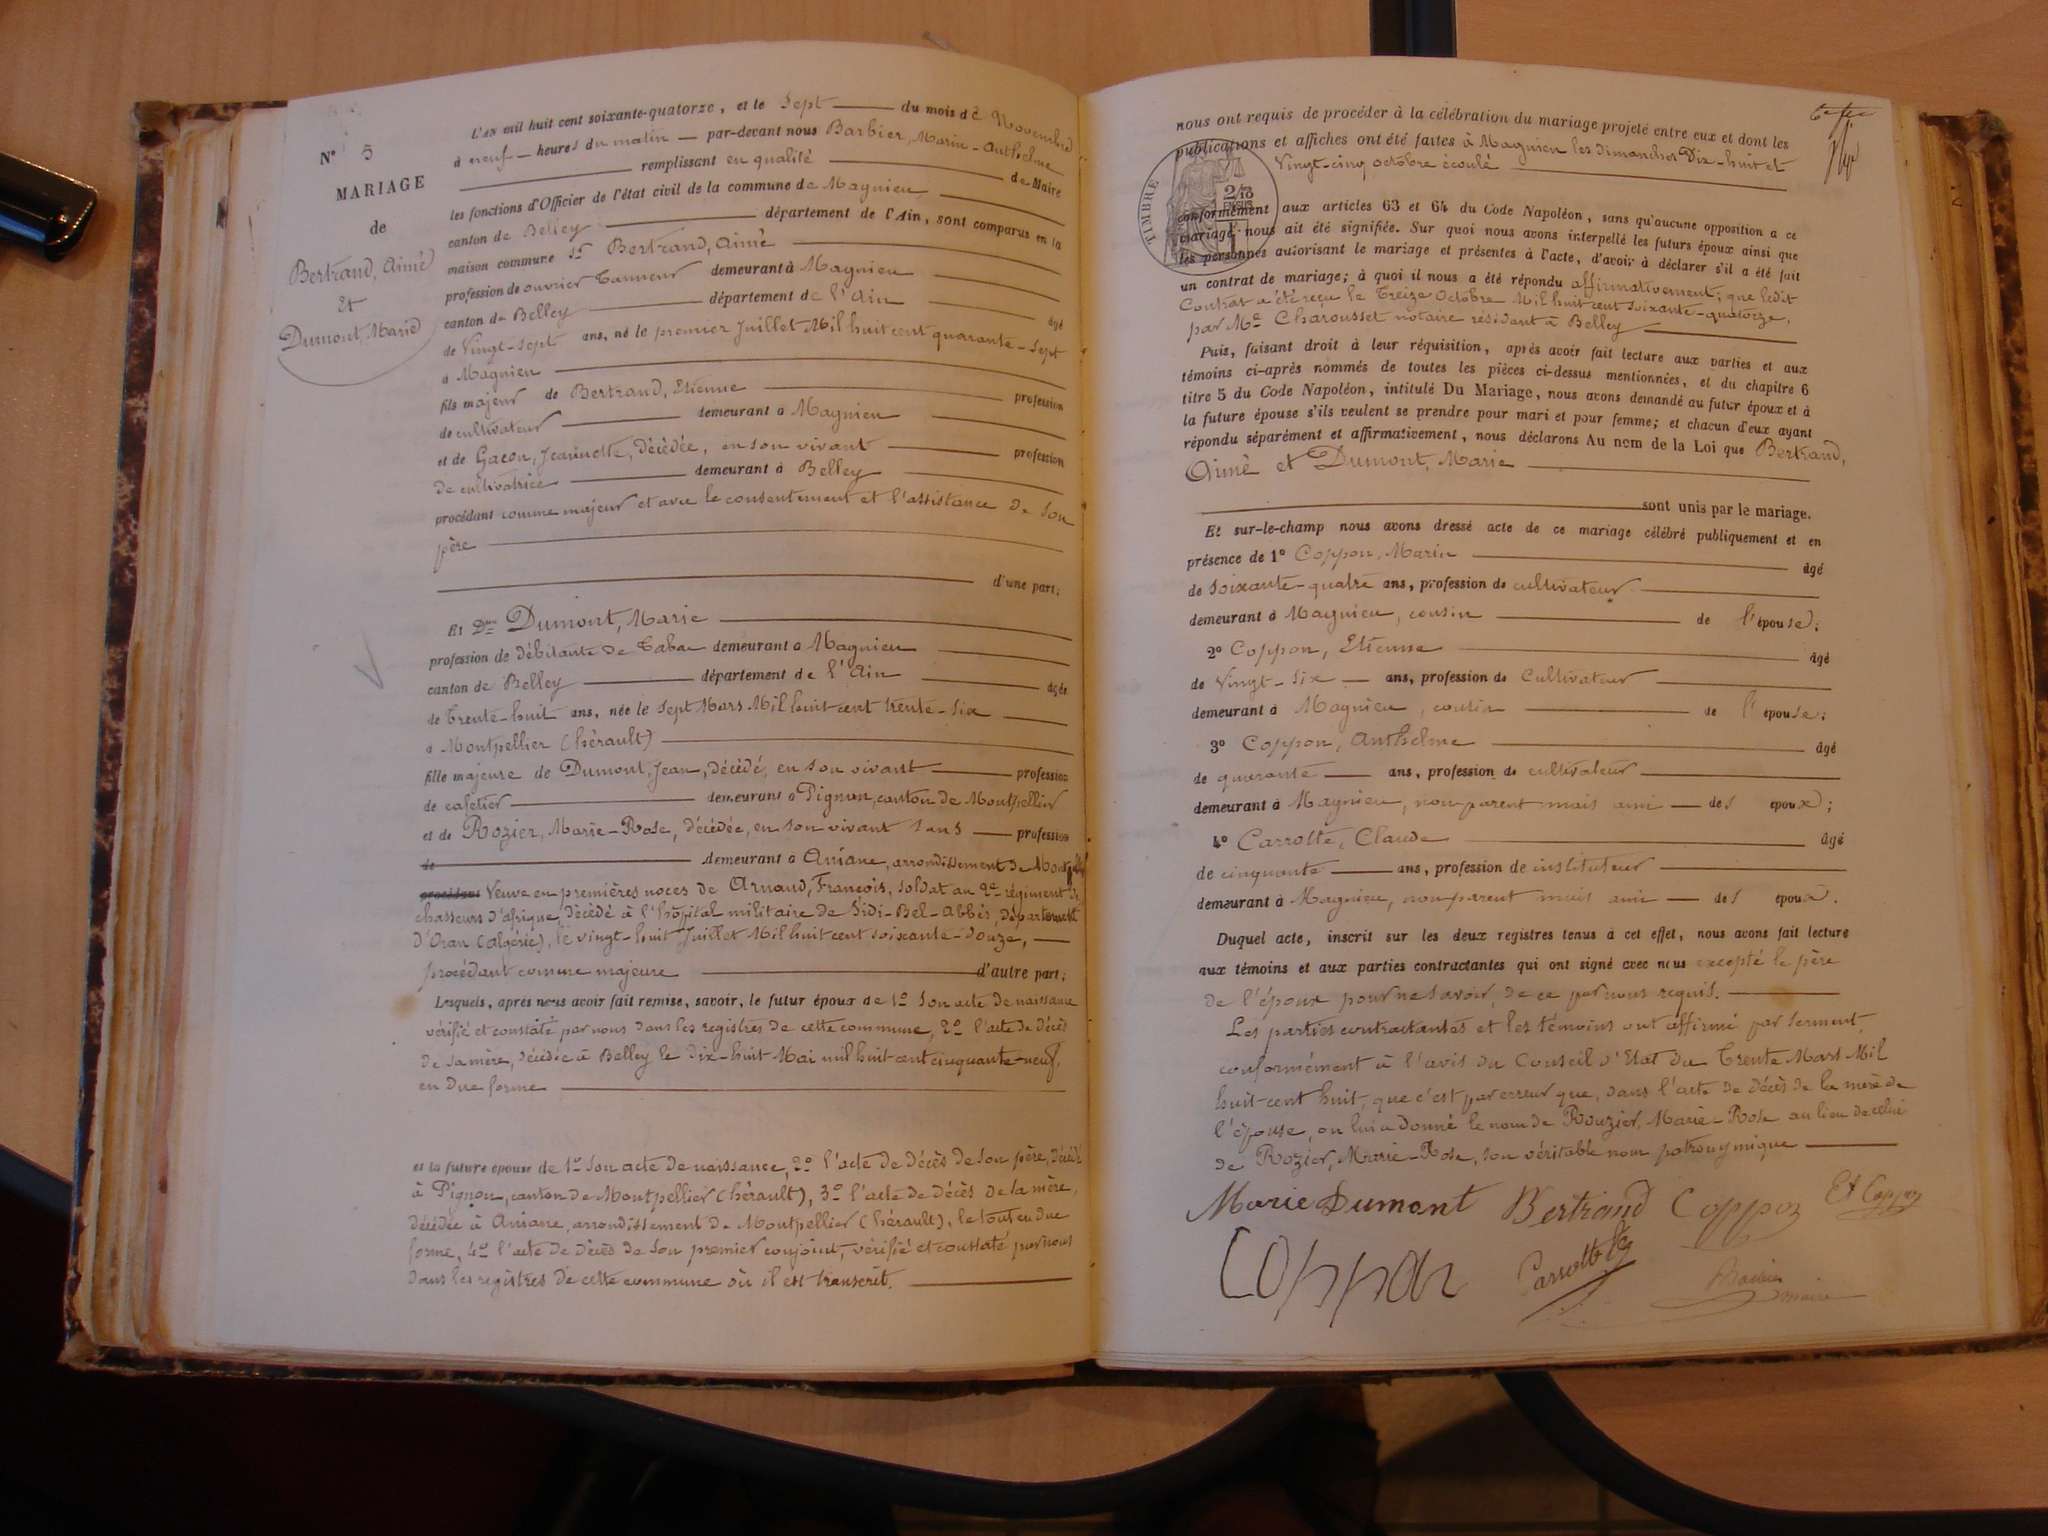 N° 5
MARIAGE
de
Bertrand, Aimé
Et
Dumont, Marie
L'AN mil huit cent soixante-quatorze, et le Sept du mois de Novembre
à neuf heures du matin par-devant nous Barbier, Marin-Anthelme
remplissant en qualité de Maire
les fonctions d'Officier de l'état civil de la commune de Magnieu
canton de Belley département de l'Ain, sont comparus en la
maison commune Sr Bertrand, Aimé
profession de ouvrier Tanneur demeurant à Magnieu
canton de Belley département de l'Ain âgé
de Vingt-sept ans, né le premier Juillet Mil huit cent quarante-sept
à Magnieu
fils majeur de Bertrand, Etienne profession
de cultivateur demeurant à Magnieu
et de Gacon, Jeannette, décédée, en son vivant profession
de cultivatrice demeurant à Belley
procédant comme majeur et avec le consentement et l'assistance de son
père
d'une part;
Et Dme Dumont, Marie
profession de débitante de Tabac demeurant à Magnieu
canton de Belley département de l'Ain âgée
de Trente-huit ans, née le Sept Mars Mil huit cent trente-six
à Montpellier (hérault)
fille majeure de Dumont, Jean, décédé, en son vivant profession
de cafetier demeurant à Pignan, canton de Montpellier
et de Rozier, Marie-Rose, décédée, en son vivant sans profession
de demeurant à Aniane, arrondissement de Montpellier
procédant Veuve en premières noces de Arnaud, François, soldat au 2e régiment de
chasseurs d'afrique, décédé à l'hôpital militaire de Sidi-Bel-Abbès, département
d'Oran (algérie), le vingt-huit Juillet Mil huit cent soixante-douze,
procédant comme majeure d'autre part;
Lesquels, après nous avoir fait remise, savoir, le futur époux de 1° Son acte de naissance
vérifié et constaté par nous dans les registres de cette commune, 2° l'acte de décès
de sa mère, décédée à Belley le dix-huit Mai mil huit cent cinquante-neuf,
en due forme
et la future épouse de 1° Son acte de naissance, 2° l'acte de décès de son père, décédé
à Pignan, canton de Montpellier (hérault), 3° l'acte de décès de sa mère,
décédée à Aniane, arrondissement de Montpellier (hérault), le tout en due
forme, 4° l'acte de décès de son premier conjoint, vérifié et constaté par nous
dans les registres de cette commune où il est transcrit.
nous ont requis de procéder à la célébration du mariage projeté entre eux et dont les
publications et affiches ont été faites à Magnieu les dimanches Dix-huit et
Vingt-cinq octobre écoulé
TIMBRE
2/10
EN SUS
conformément aux articles 63 et 64 du Code Napoléon, sans qu'aucune opposition a ce
mariage nous ait été signifiée. Sur quoi nous avons interpellé les futurs époux ainsi que
les personnes autorisant le mariage et présentes à l'acte, d'avoir à déclarer s'il a été fait
un contrat de mariage; à quoi il nous a été répondu affirmativement; que ledit
Contrat a été reçu le Treize Octobre Mil huit cent soixante-quatorze,
par Me Charousset notaire résidant à Belley
Puis, faisant droit à leur réquisition, après avoir fait lecture aux parties et aux
témoins ci-après nommés de toutes les pièces ci-dessus mentionnées, et du chapitre 6
titre 5 du Code Napoléon, intitulé Du Mariage, nous avons demandé au futur époux et à
la future épouse s'ils veulent se prendre pour mari et pour femme; et chacun d'eux ayant
répondu séparément et affirmativement, nous déclarons Au nom de la Loi que Bertrand,
Aimé et Dumont, Marie
sont unis par le mariage.
Et sur-le-champ nous avons dressé acte de ce mariage célébré publiquement et en
présence de 1° Coppon, Marin âgé
de Soixante-quatre ans, profession de cultivateur
demeurant à Magnieu, cousin de l'épouse;
2° Coppon, Etienne âgé
de Vingt-six ans, profession de Cultivateur
demeurant à Magnieu, cousin de l'épouse;
3° Coppon, Anthelme âgé
de quarante ans, profession de cultivateur
demeurant à Magnieu, non parent mais ami des époux;
4° Carrotte, Claude âgé
de cinquante ans, profession de instituteur
demeurant à Magnieu, non parent mais ami des époux.
Duquel acte, inscrit sur les deux registres tenus à cet effet, nous avons fait lecture
aux témoins et aux parties contractantes qui ont signé avec nous excepté le père
de l'époux pour ne savoir, de ce par nous requis.
Les parties contractantes et les témoins ont affirmé par serment,
conformément à l'avis du Conseil d'Etat du Trente Mars Mil
huit cent huit, que c'est par erreur que, dans l'acte de décès de la mère de
l'épouse, on lui a donné le nom de Rouzier, Marie-Rose au lieu de celui
de Rozier, Marie-Rose, son véritable nom patronymique
Marie Dumont Bertrand Coppon Et Coppon
Coppon Carrotte Barbier
maire